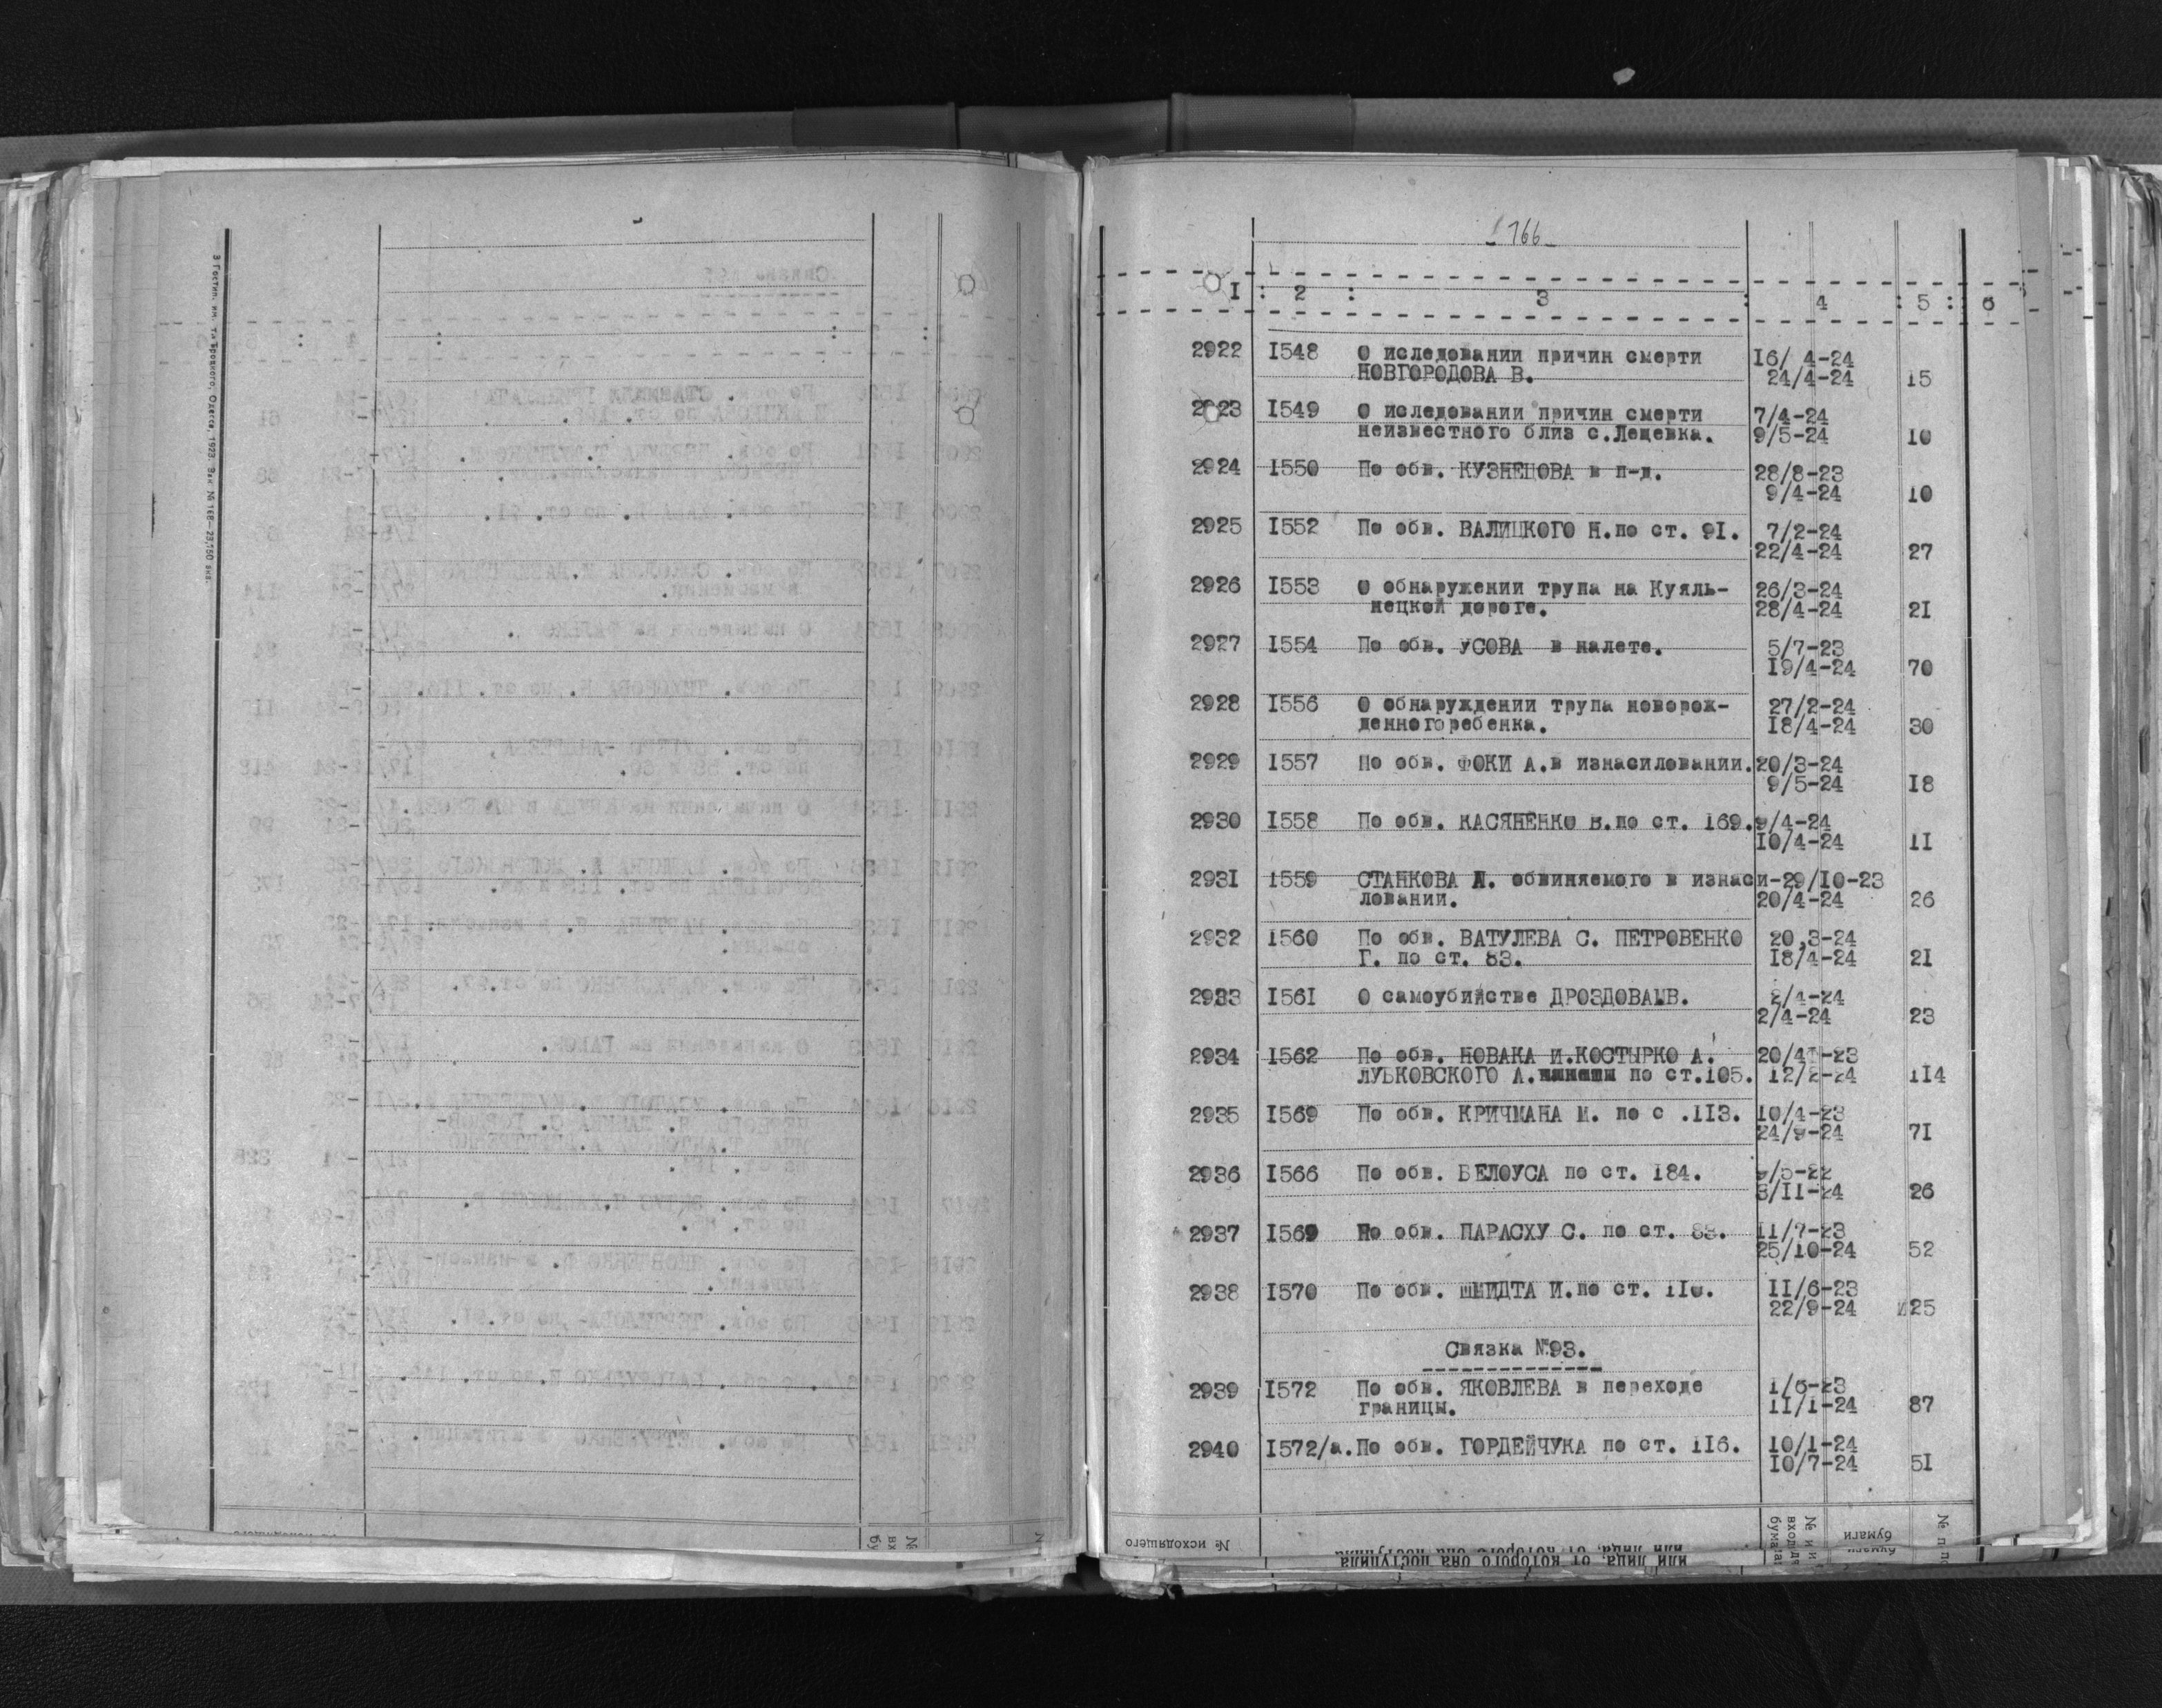 3 Гостип. им. т. Троцкого, Одесса, 1923.
766
I : 2 : 3 : 4 : 5 : 6
2922 I548 О иследовании причин смерти I6/ 4-24
НОВГОРОДОВА В. 24/4-24 I5
2923 I549 О иследовании причин смерти 7/4-24
неизвестного близ с.Лещевка. 9/5-24 I0
2924 I550 По обв. КУЗНЕЦОВА в п-д. 28/8-23
9/4-24 I0
2925 I552 По обв. ВАЛИЦКОГО Н.по ст. 9I. 7/2-24
22/4-24 27
2926 I553 О обнаружении трупа на Куяль- 26/3-24
нецкой дороге. 28/4-24 2I
2927 I554 По обв. УСОВА в налете. 5/7-23
I9/4-24 70
2928 I556 О обнаруждении трупа новорож- 27/2-24
денногоребенка. I8/4-24 30
2929 I557 По обв. ФОКИ А.в изнасиловании. 20/3-24
9/5-24 I8
2930 I558 По обв. КАСЯНЕНКО В.по ст. I69. 9/4-24
I0/4-24 II
293I I559 СТАНКОВА Д. обвиняемого в изнаси-29/I0-23
ловании. 20/4-24 26
2932 I560 По обв. ВАТУЛЕВА С. ПЕТРОВЕНКО 20,3-24
Г. по ст. 83. I8/4-24 2I
2933 I56I О самоубийстве ДРОЗДОВА В. 2/4-24
2/4-24 23
2934 I562 По обв. НОВАКА И.КОСТЫРКО А. 20/4-23
ЛУБКОВСКОГО А. по ст.I05. I2/2-24 II4
2935 I569 По обв. КРИЧМАНА М. по с .II3. I0/4-23
24/9-24 7I
2936 I566 По обв. БЕЛОУСА по ст. I84. 9/5-22
8/II-24 26
2937 I569 По обв. ПАРАСХУ С. по ст. 83. II/7-23
25/I0-24 52
2938 I570 По обв. ШМИДТА И.по ст. II6. II/6-23
22/9-24 25
Связка №93.
2939 I572 По обв. ЯКОВЛЕВА в переходе I/6-23
границы. II/I-24 87
2940 I572/а. По обв. ГОРДЕЙЧУКА по ст. II6. I0/I-24
I0/7-24 5I
№ исходящего
или лица, от которого она поступила
бумаги